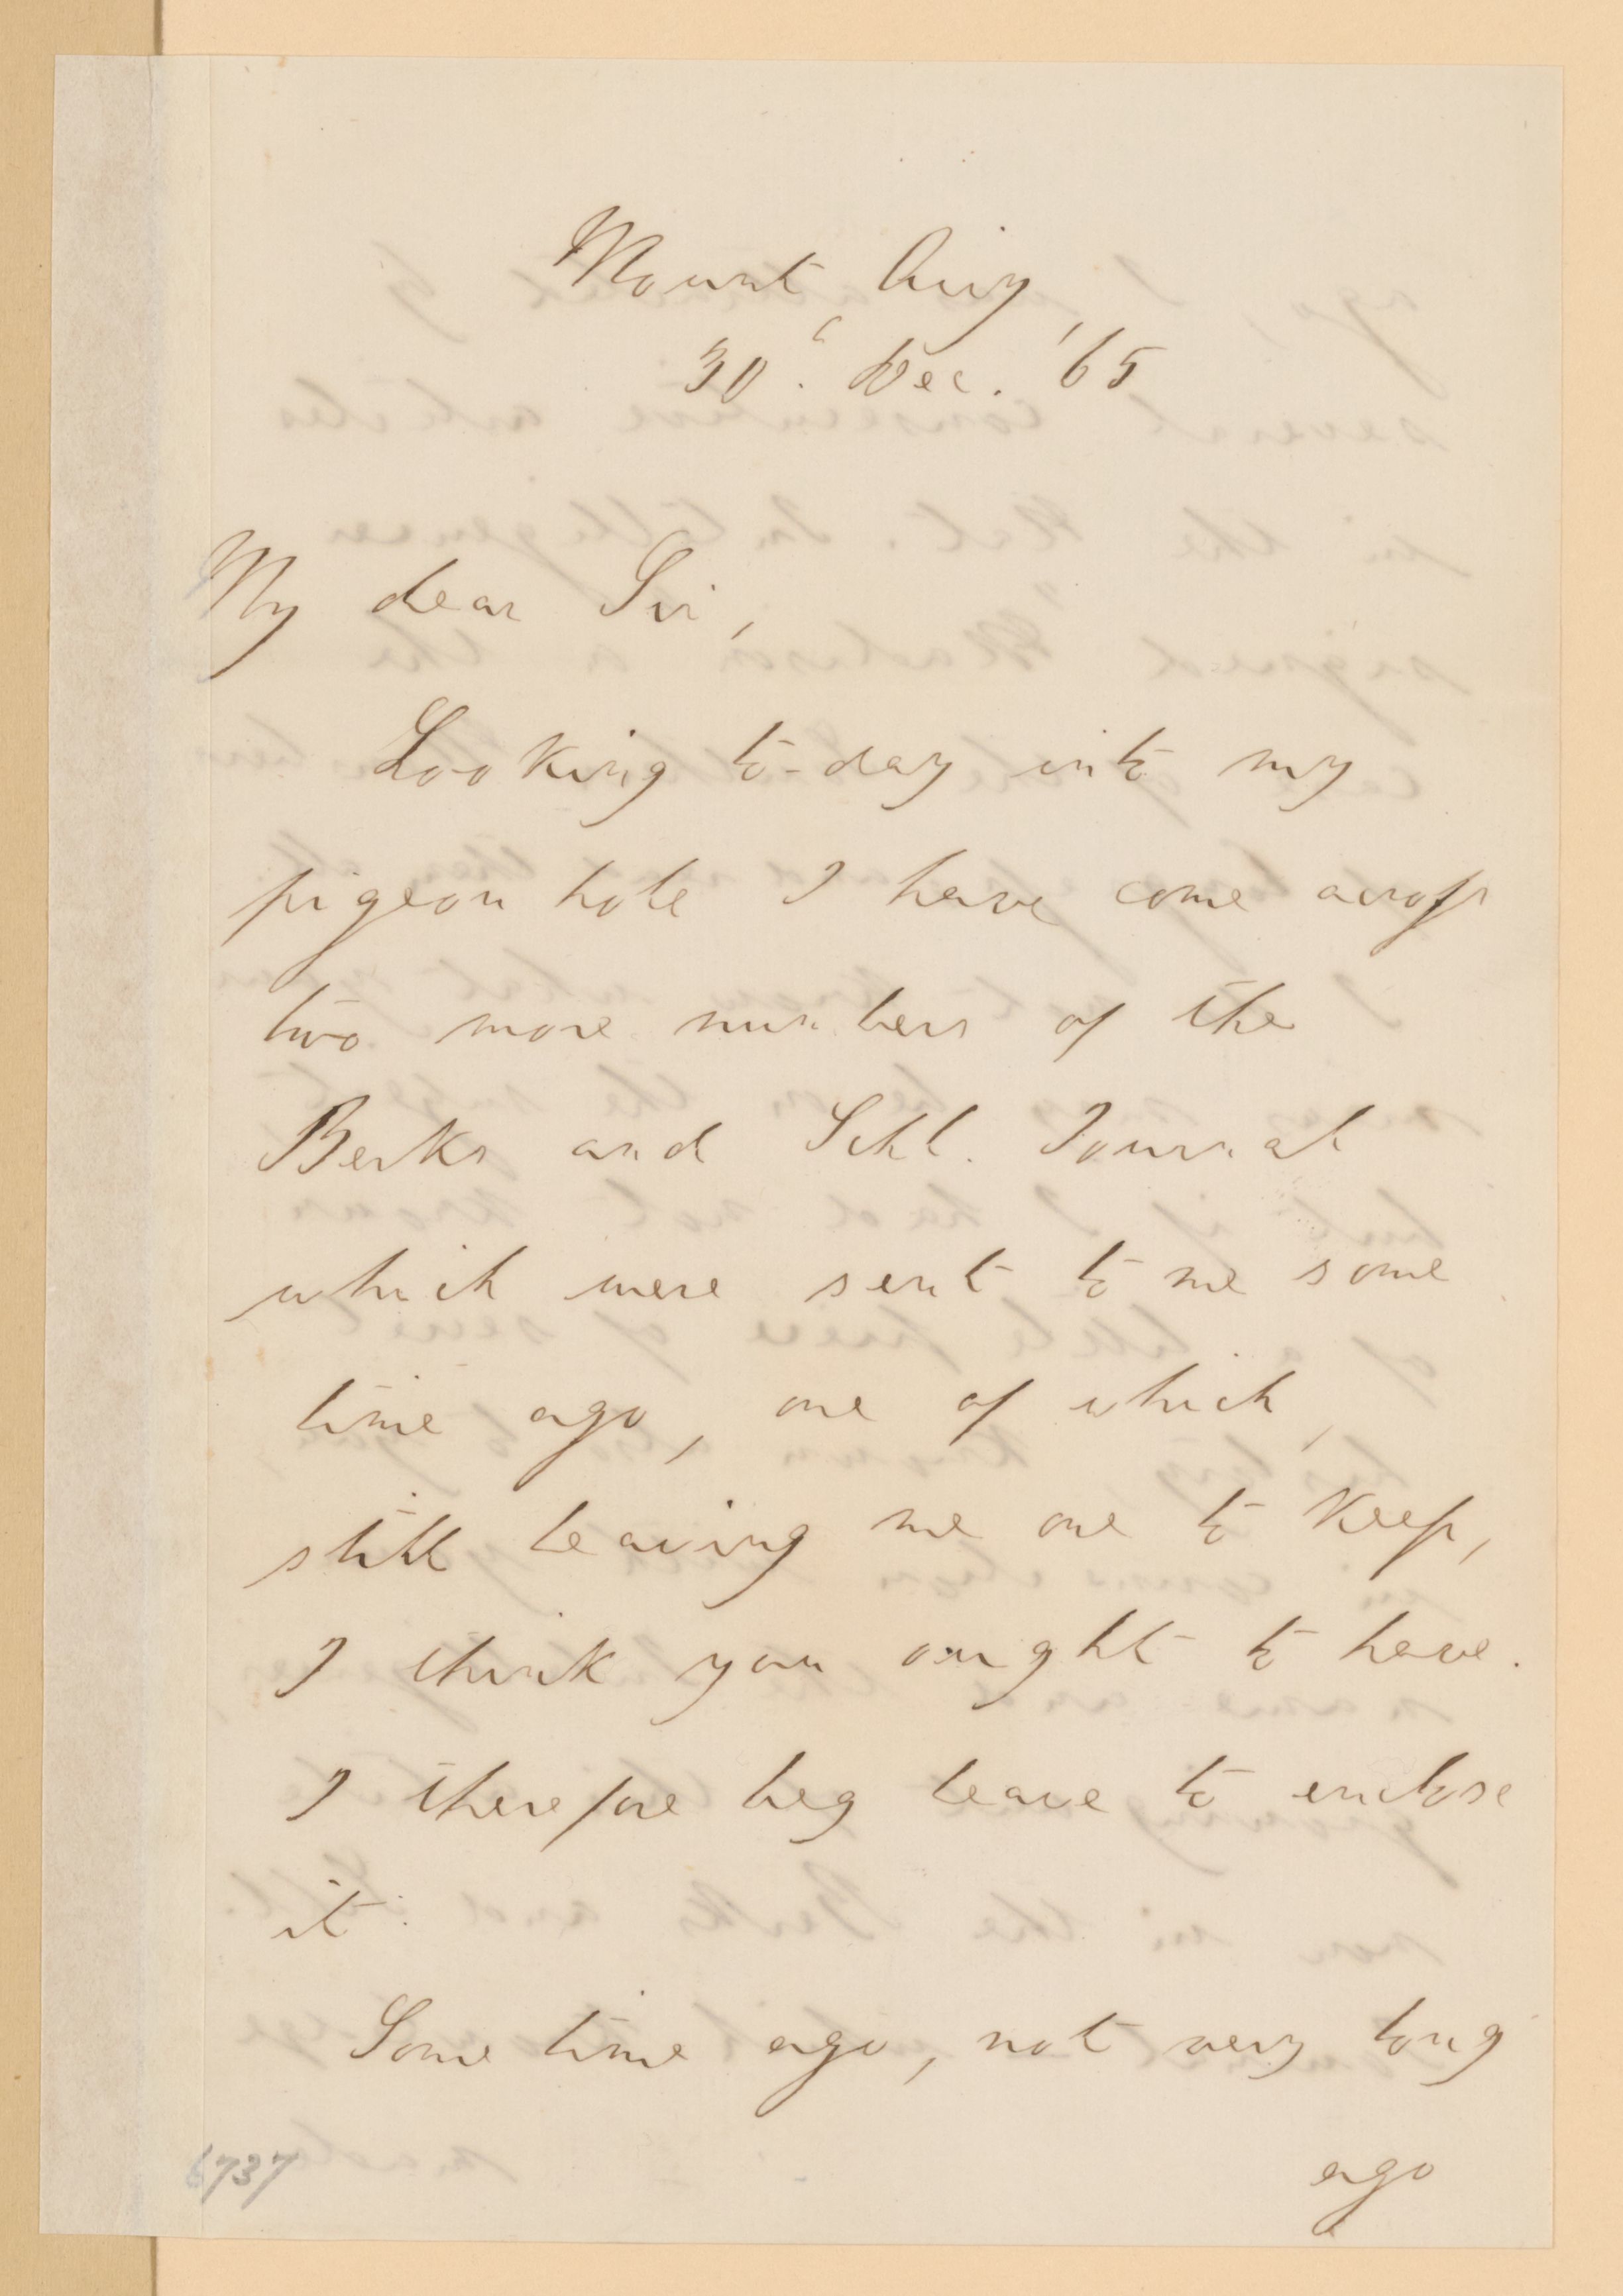 Mount Airy
30. Dec. '65
My dear Sir,
Looking to-day into my
pigeon hole I have come across
two more numbers of the
Berks and Schl. Journal
which were sent to me some
time ago, one of which,
still leaving me one to keep,
I think you ought to have.
I therefore beg leave to enclose
it.
Some time ago, not very long
ago
6737